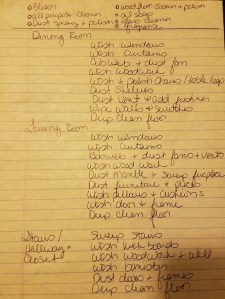 Bleach
wood floor cleaner + polish
all purpose cleaner
oil soap
Dust spray + polish
glass cleaner
Dining Room
Wash windows
Wash Curtains
Cobweb + dust fan
Wash woodwork
Wash + Polish Chairs/table legs
Dust Shelves
Dust Vent + add freshner
Wipe Walls + Switches
Deep Clean floor
Living Room
Wash windows
Wash Curtains
Cobweb + dust fans + vents
Wash Wood Work
Dust Mantle + Sweep fireplace
Dust furniture +
Wash pillows + Cushions
Wash door + frame
Deep Clean floor
Stairs/
Hallway +
Closet
Sweep Stairs
Wash boards
Wash Woodwork + Wall
Wash banister
Dust doors + frames
Deep Clean floor